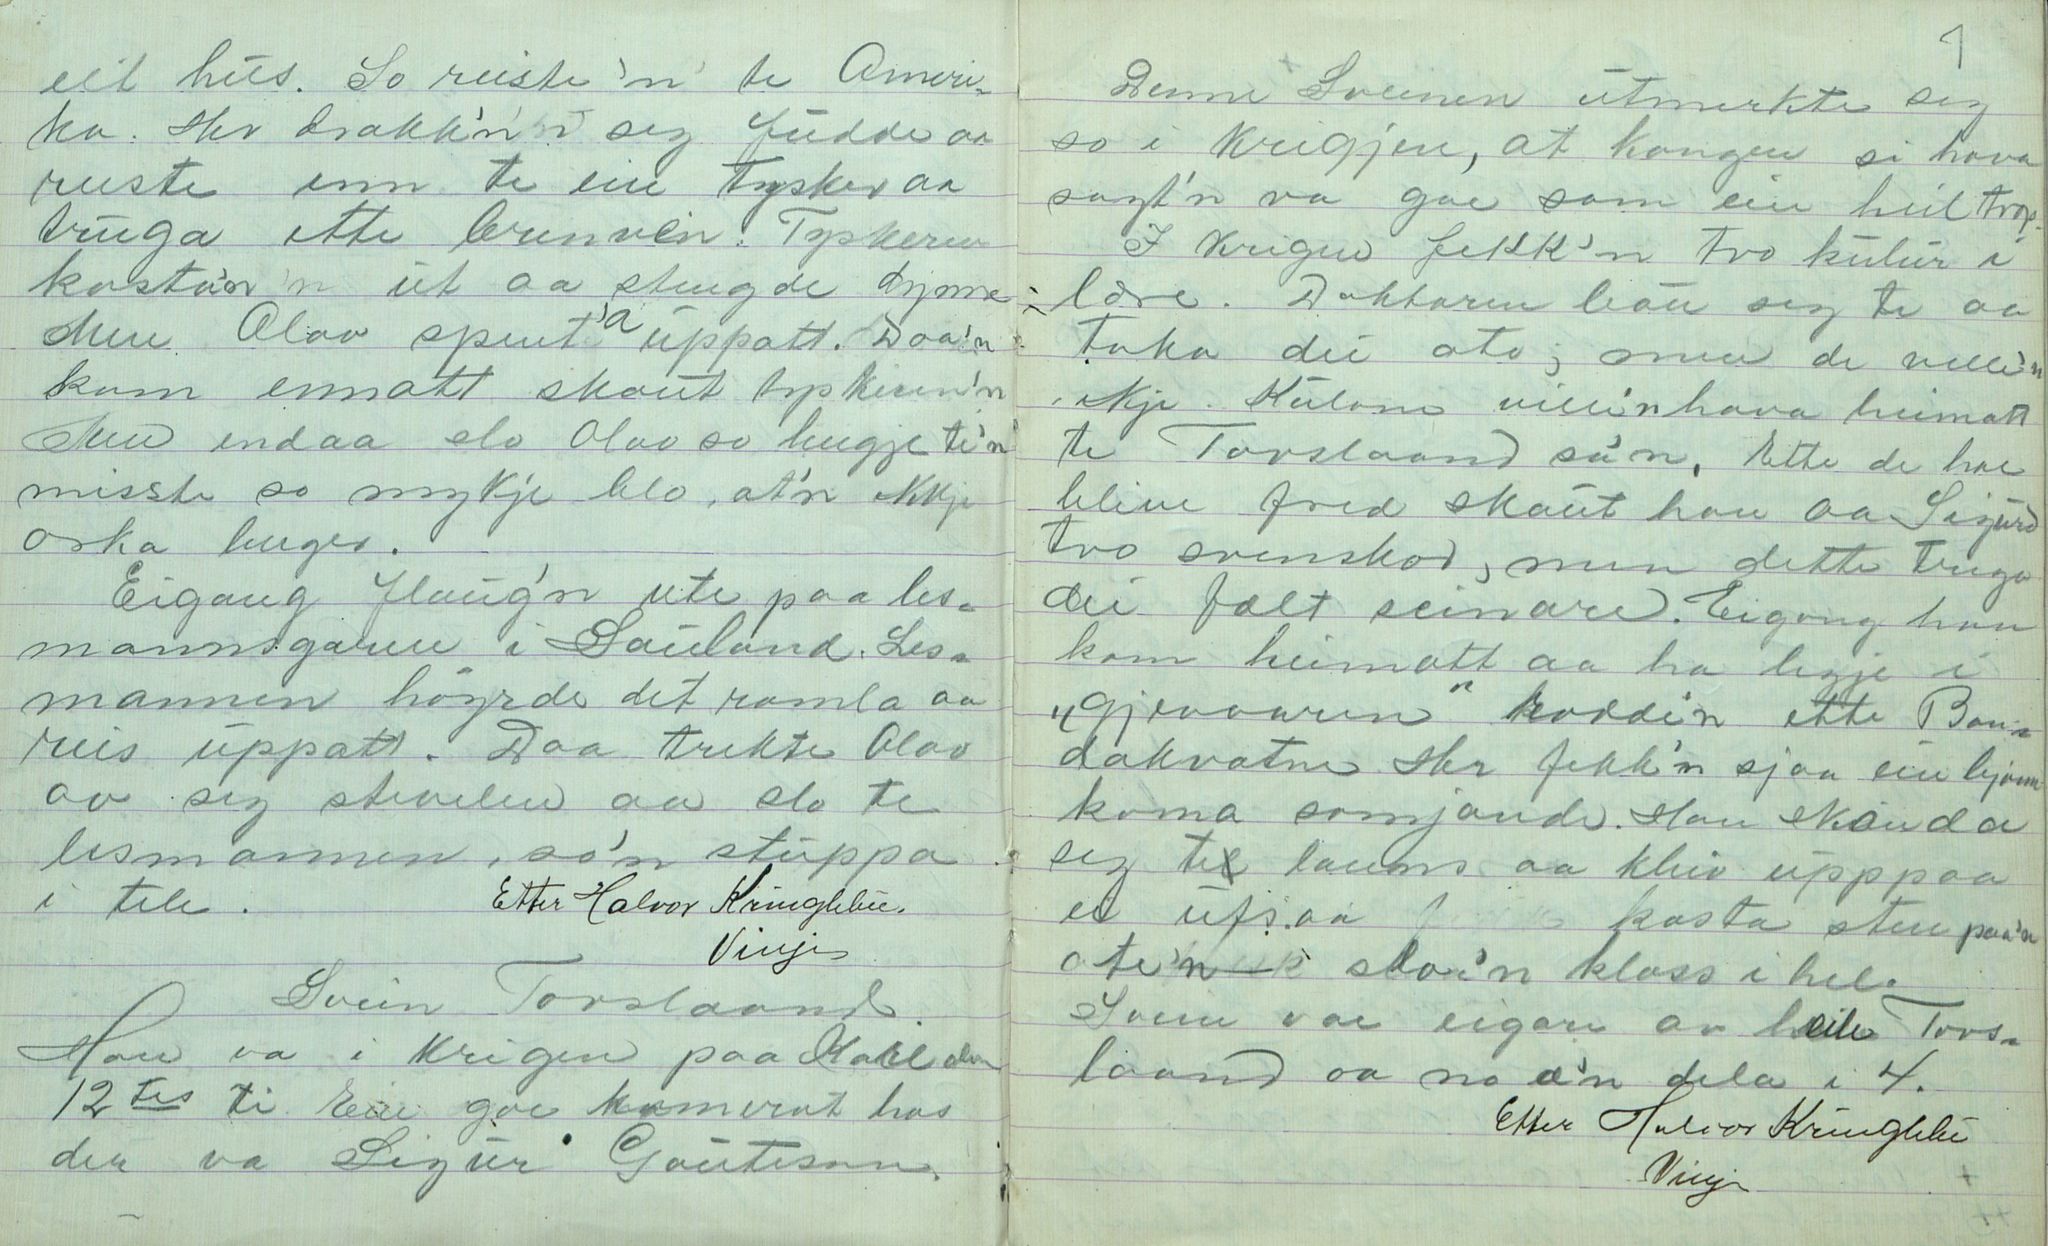 eit hus. So reiste'n te Ameri-
ka. Her drakk'n seg fudde aa
reiste inn te ein tyskar aa
truga ette brenvin. Tyskeren
kasta'n ut aa stengde dynne
Men Olav spent'a uppatt. Daa'n
kom ennatt skaut tyskeren'n
Men endaa slo Olav so lengje te'n
misste so mykje blo, at'n ikkje
orka lenger.
Eigang flaug'n ute paa les-
mannsgaren i Sauland. Les-
mannen höyrde det ramla aa
reis uppatt. Daa trekte Olav
av seg stevelen aa slo te
lesmannen, so'n stuppa
i tele.
Etter Halvor Kringlebu.
Vinje
Svein Torslaand.
Han va i krigen paa Karl den
12tes ti. Ein goe kamerat hos
der va Sigur Gauteson.
1
Denne Sveinen utmerkte seg
so i krigjen, at kongen si hava
sagt'n va goe som ein heil trop.
I krigen fekk'n tvo kulur i
lære. Doktaren bau seg te aa
taka dei ato; men de ville'n
ikkje. Kulone ville'n hava heimatt
te Torslaand sa'n. Ette de hae
blive fred skaut han aa Sigurd
tvo svenskar, men dette truga
dei fælt seinare. Eigong han
kom heimatt aa ha legje i
"Gjevaaren" rodde'n ette Ban-
dakvatne. Her fekk'n sjaa ein bjönn
koma symjande. Han skunda
seg te lanns aa kleiv upppaa
ei ufs aa kasta stein paa'n
ate'n slo'n klass i hel.
Svein var eigar av heile Tors-
laand aa no æ'n dela i 4.
Etter Halvor Kringlebu
Vinje